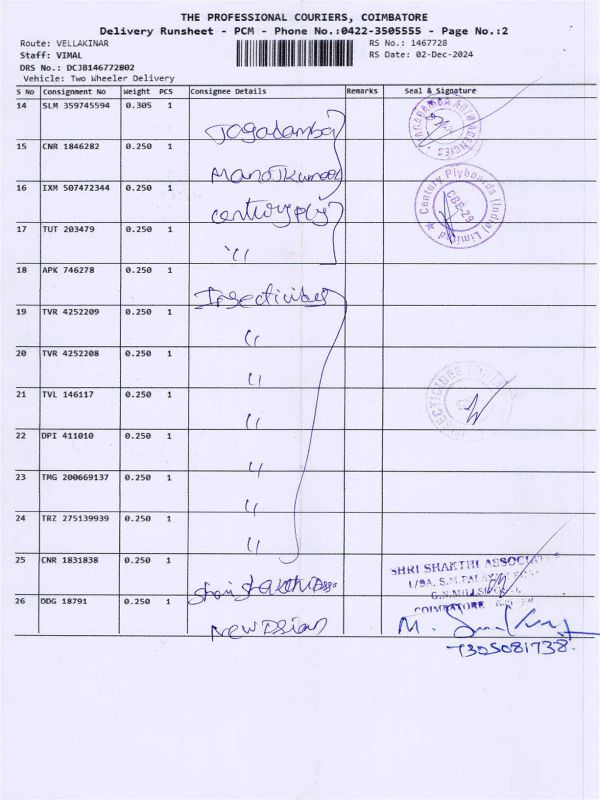 THE PROFESSIONAL COURIERS, COIMBATORE
Delivery Runsheet - PCM - Phone No.:0422-3505555 - Page No.:2
Route: VELLAKINAR RS No.: 1467728
Staff: VIMAL RS Date: 02-Dec-2024
DRS No.: DCJB146772802
Vehicle: Two Wheeler Delivery
S No Consignment No Weight PCS Consignee Details Remarks Seal & Signature
14 SLM 359745594 0.305 1
Jagadamba
15 CNR 1846282 0.250 1
Manojkumar
16 IXM 507472344 0.250 1
centuryply
Century Plyboards (India) Limited
CBE-29
17 TUT 203479 0.250 1
"
18 APK 746278 0.250 1
Insecticides
19 TVR 4252209 0.250 1
"
20 TVR 4252208 0.250 1
"
21 TVL 146117 0.250 1
"
INSECTICIDES
22 DPI 411010 0.250 1
"
23 TMG 200669137 0.250 1
"
24 TRZ 275139939 0.250 1
"
25 CNR 1831838 0.250 1
Shri Shakthi Asso
SHRI SHAKTHI ASSOCIATES
1/9A, S.M.PALAYAM
G.N.MILLS
COIMBATORE
26 DDG 18791 0.250 1
M.
7305081738.